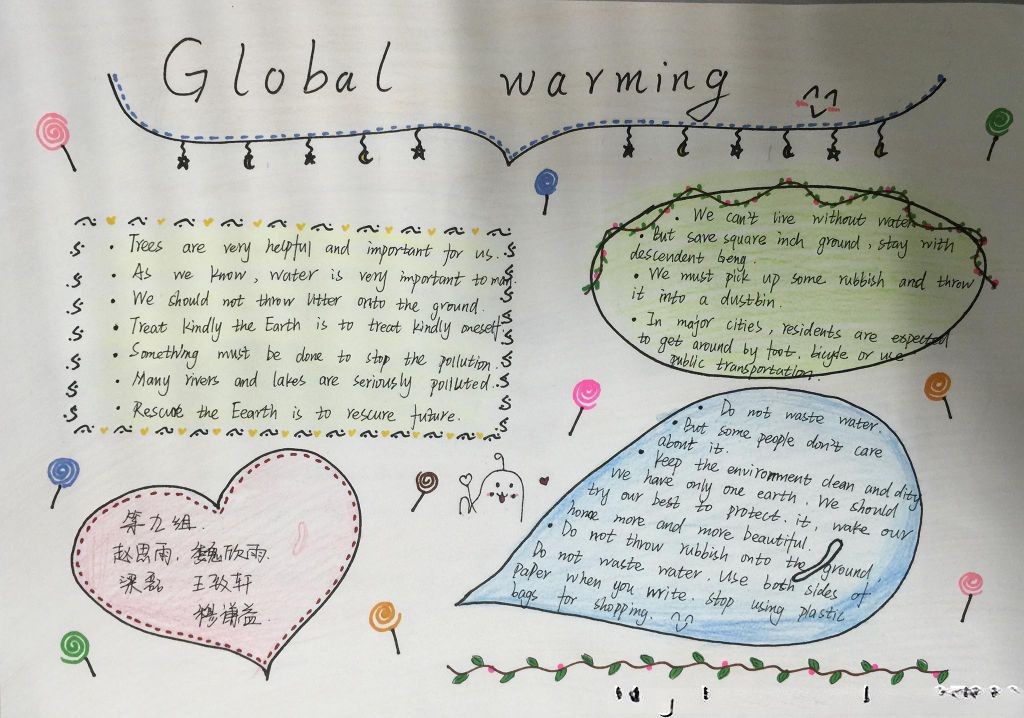 Global warming
• Trees are very helpful and important for us.
• As we know, water is very important to man.
• We should not throw litter onto the ground.
• Treat kindly the Earth is to treat kindly oneself
• Something must be done to stop the pollution.
• Many rivers and lakes are seriously polluted.
• Rescure the Eearth is to rescure future.
• We can't live without water
• But save square inch ground, stay with
descendent beng.
• We must pick up some rubbish and throw
it into a dustbin.
• In major cities, residents are expected
to get around by foot. bicyle or use
public transportation.
• Do not waste water.
• But some people don't care
about it.
• keep the environment clean and dity
We have only one earth. We should
try our best to protect. it, wake our
home more and more beautiful.
• Do not throw rubbish onto the ground
Do not waste water. Use both sides of
paper when you write. stop using plastic
bags for shopping.
第九组.
赵思雨. 魏欣雨.
梁磊 王玫轩
穆谦益.